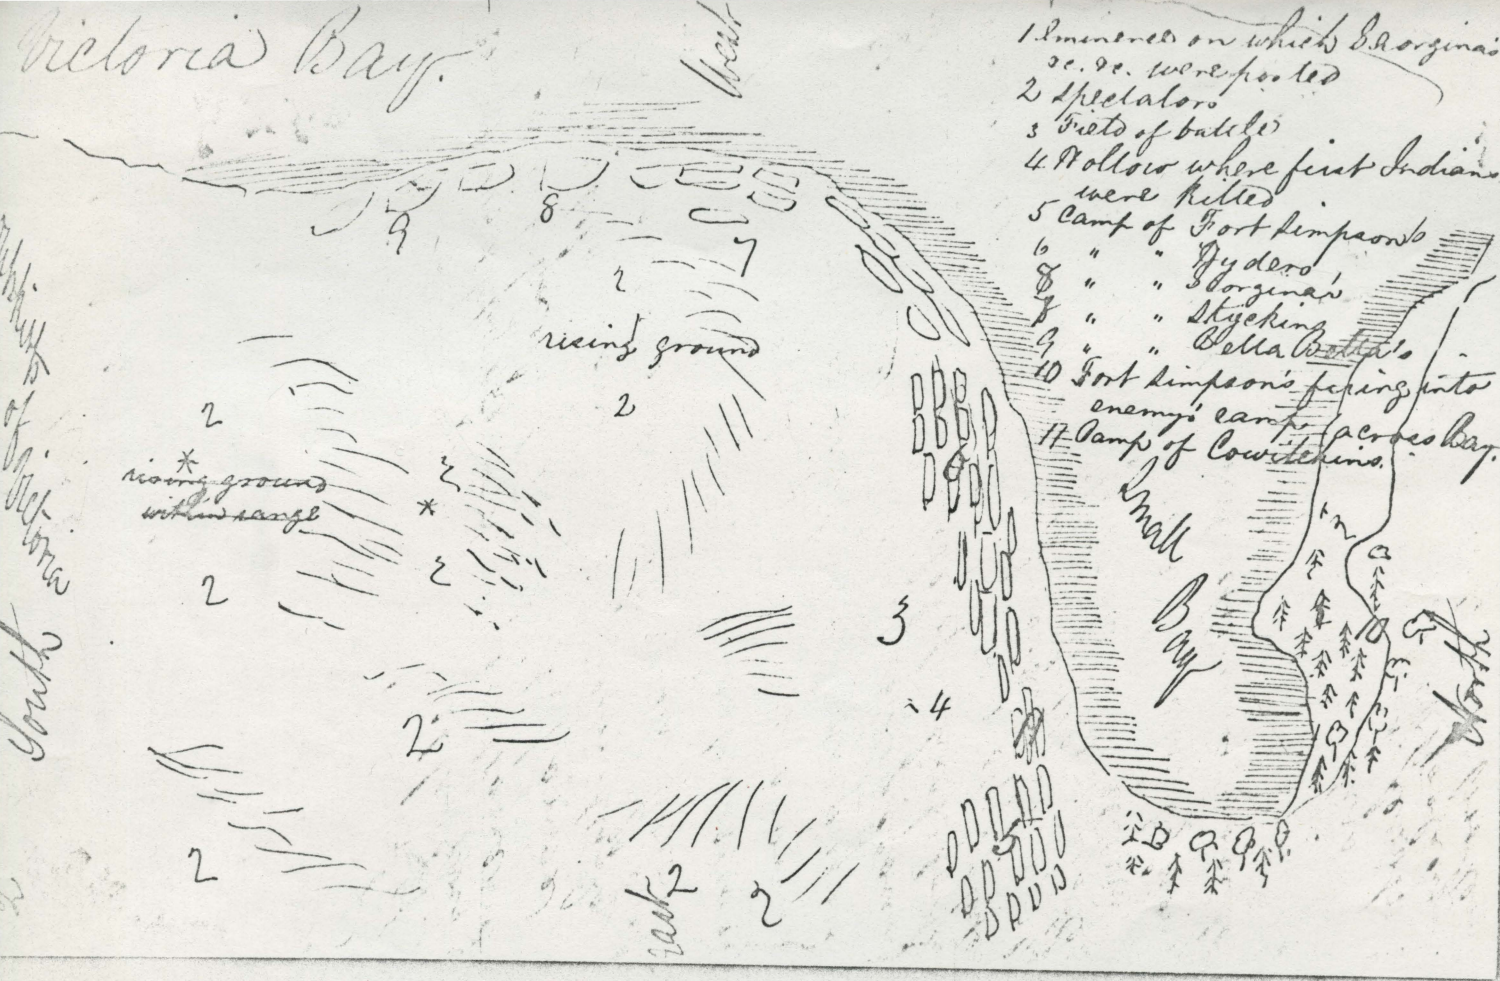 Victoria Bay.
West
1 Eminences on which Georgina's
&c. &c. were posted
2 Spectators
3 Field of battle
4 Hollow where first Indians
were killed
5 Camp of Fort Simpson's
6 " " Hyders
8 " " Georgina's
8 " " Stycking
9 " " Bella Bella's
10 Fort Simpson's firing into
enemy's camp across Bay.
11 Camp of Cowitchins.
9
8
7
2
rising ground
2
2
*
rising ground
within range
3
*
3
2
6
3
4
2
2
5
2
2
East
Small
Bay
North
of Victoria
South